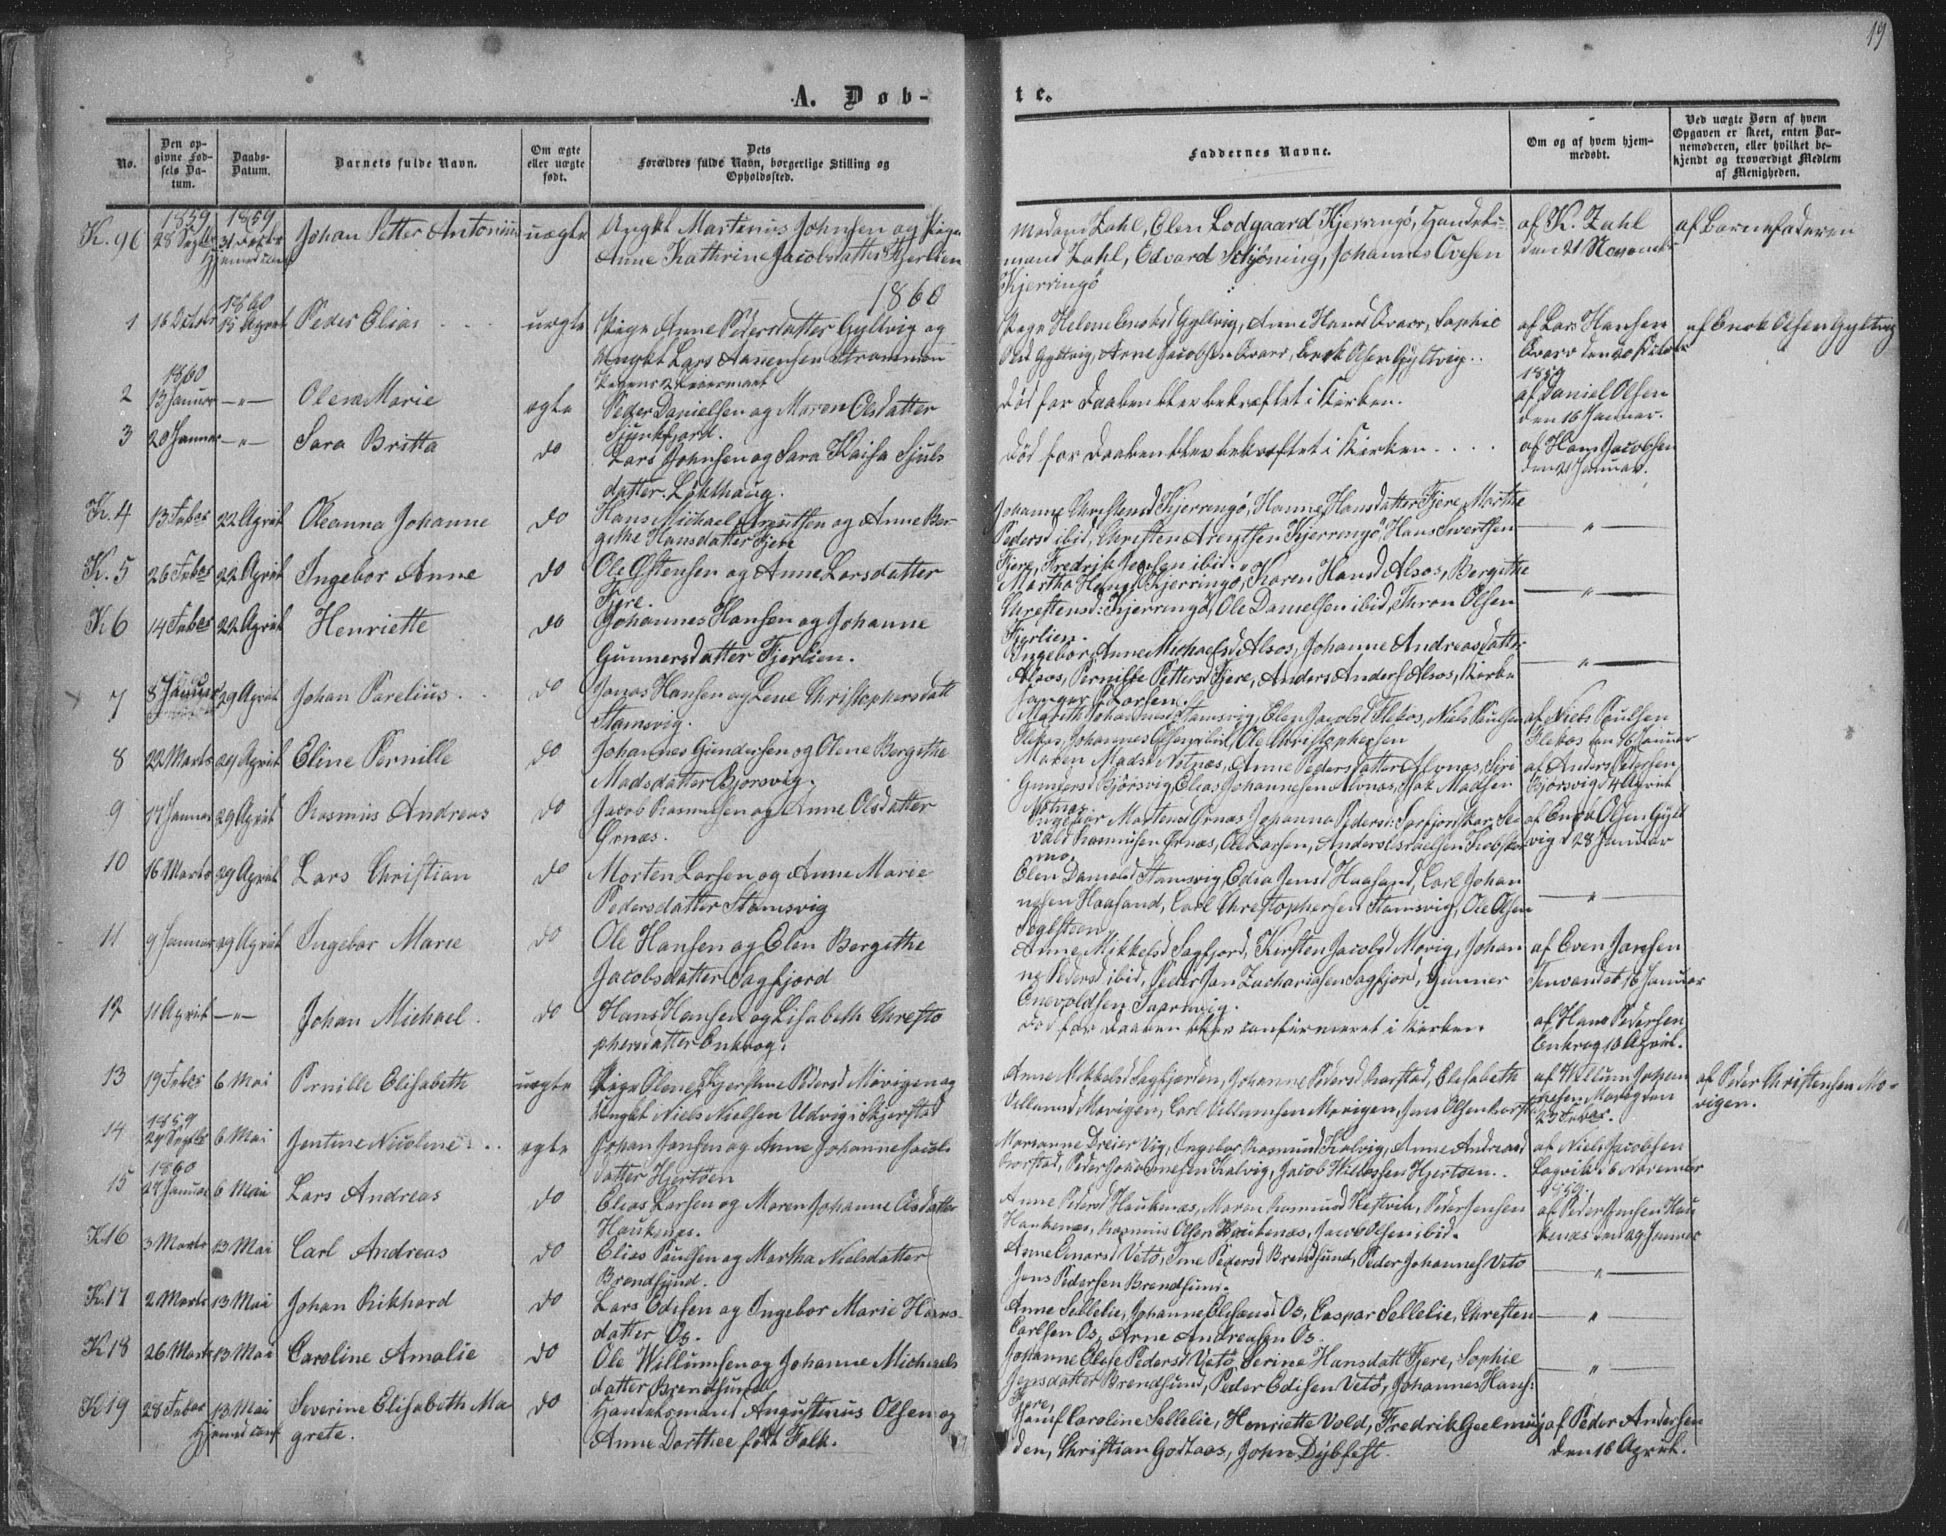 19
A. Døb-
te.
No.
Den op-
givne Fød-
sels Da-
tum.
Daabs-
Datum.
Barnets fulde Navn.
Om ægte
eller uægte
født.
Dets
Forældres fulde Navn, borgerlige Stilling og
Opholdssted.
Faddernes Navne.
Om og af hvem hjem-
medøbt.
Ved uægte Børn af hvem
Opgaven er skeet, enten Bar-
nemoderen, eller hvilket be-
kjendt og troværdigt Medlem
af Menigheden.
K. 96
1859
28 Septbr
1859
31
Hjemed conf
Johan Petter Antonius
uægte
Ungkl Martinus Johnsen og Pige
Anne Kathrine Jacobsdatter Fjerlien
Madam Zahl, Elen Lodgaard, Kjerringö, Handels-
mand Zahl, Edvard Schjöning, Johannes Ovesen
Kjerringö
af K. Zahl
den 21 November
af Barnefaderen
1860
1
16 Octobr
1860
15 April
Peder Elias
uægte
Pige Anne Pedersdatter Gyltvig og
Ungkl Lars
Pige Helene Enoksd Gyltvig, Anne Hansd Qvarv, Sophie
Olsd Gyltvig, Arne Jacobsen Qvarv, Enok Olsen Gyltvig.
af Lars Hansen
Qvarv den 20
1859
af Enok Olsen Gyltvig
2
1860
13 Januar
—"—
Olena Marie
ægte
Peder Danielsen og Maren Olsdatter
Sjunkfjord.
Död før Daaben blev bekræftet i Kirken.
af Daniel Olsen
den 16 Januar.
3
20 Januar
—"—
Sara Britta
do
Lars Johnsen og Sara Kaisa Sjuls
datter.
Död før Daaben blev bekræftet i Kirken
af Hans Jacobsen
den 21 Januar.
K. 4
13 Febr
22 April
Oleanna Johanne
do
Hans Michael Arentsen og Anne Ber-
githe Hansdatter Fjere
Johanne Christensd Kjerringö, Hanne Hansdatter Fjere, Marthe
Pedersd ibid, Christen Arentsen Kjerringö, Hans Sivertsen
Fjere, Fredrik Jensen ibid.
—"—
K. 5
26 Febr
22 April
Ingebor Anne
do
Ole Östensen og Anne Larsdatter
Fjere.
Martha Hansd Kjerringö, Karen Hansd Alsos, Bergithe
Christensd: Kjerringö, Ole Danielsen ibid, Thron Olsen
Fjerlien.
—"—
K 6
14 Febr
22 April
Henriette
do
Johannes Hansen og Johanne
Gunnersdatter Fjerlien.
Ingebor Anne Michaelsd Alsos, Johanne Andreasdatter
Alsos, Pernille Pettersd Fjere, Anders Anders Alsos, Kirke
sanger P. Larsen.
—"—
7
8 Januar
29 April
Johan Parelius
do
Jonas Hansen og Lene Christophersdatt
Stamsvig.
Mareth Johannesd Stamsvig, Elen Jacobsd Flekos, Niels Paulsen
Flekos, Johannes Olsen ibid, Ole Christophersen
af Niels Paulsen
Flekos den 16 Januar
8
22 Marts
29 April
Eline Pernille
do
Johannes Gundersen og Olene Bergithe
Madsdatter Bjorsvig.
Maren Madsd Notnæs, Anne Pedersdatter Alvnæs, Siri
Gundersd Björsvig, Elias Johannesen Alvnæs, Isak Madsen
Notnæs.
af Anders Petersen
Bjorsvig 4 April
9
17 Januar
29 April
Rasmus Andreas
do
Jacob Rasmusen og Anne Olsdatter
Örnæs.
Ingebor Mortensd Örnæs, Johanna Pedersd:
vald Rasmusen Örnæs, Ole Larsen, Anders Israelsen
af Enok Olsen Gylt
vig d 28 Januar
10
16 Marts
29 April
Lars Christian
do
Morten Larsen og Anne Marie
Pedersdatter Stamsvig
Elen Danielsd Stamsvig, Edia Jensd Haasand, Carl Johan
nesen Haasand, Carl Christophersen Stamsvig, Ole Olsen
—"—
11
9 Januar
29 April
Ingebor Marie
do
Ole Hansen og Elen Bergithe
Jacobsdatter Sagfjord
Anne Mikkelsd Sagfjord, Kirsten Jacobsd Movig, Johan
ne Pedersd ibid, Peder Jan Zachariasen Sagfjord, Gunner
Enevoldsen
af Even Jansen
Tenvandet, 16 Januar
12
11 April
—"—
Johan Michael
do
Hans Hansen og Lisabeth Christo
phersdatter Enkrog.
Död før Daaben blev confirmeret i Kirken.
af Hans Pedersen
Enkrog 10 April.
13
19 Febr
6 Mai
Pernille Elisabeth
uægte
Pige Olene Kjerstine Pedersd Movigen og
Ungkl Niels Nielsen Udvig i Skjerstad
Anne Mikkelsd Sagfjorden, Johanne Pedersd Korstad, Elisabeth
Villumsd Movigen, Carl Villumsen Movigen, Jens Olsen Korstad
af Willum Johan
nesen Movig den
23 Febr.
af Peder Christensen Mo-
vigen.
14
1859
29 Septbr
6 Mai
Jentine Nicoline
ægte
Johan Jansen og Anne Johanne Jacobs
datter Hjertöen
Marianne Dreier Vig, Ingebor Rasmusd Kalvig, Anne Andreasd
Korstad, Peder Johannesen Kalvig, Jacob Willassen Hjertöen.
af Niels Jacobsen
Lögvik 6 November
1859.
15
1860
24 Januar
6 Mai
Lars Andreas
do
Elias Larsen og Maren Johanne Olsdatter
Haukenæs.
Anne Pedersd Haukenæs, Maren Rasmusd Kistvik, Peder Jensen
Haukenæs, Rasmus Olsen Haukenæs, Jacob Olsen ibid.
af Peder Jensen Hau
kenæs den 29 Januar
K.16
3 Marts
13 Mai
Carl Andreas
do
Elias Paulsen og Martha Nielsdatter
Brendsund.
Anne Enarsd Vetö, Ane Pedersd Brendsund, Peder Johannes Vetö
Jens Pedersen Brendsun.
—"—
K.17
2 Marts
13 Mai
Johan Rikhard
do
Lars Edisen og Ingebor Marie Hans-
datter Os.
Anne Sellelie, Johanne Elisæusd Os, Caspar Sellelie, Christen
Carlsen Os, Arne Andreasen Os.
—"—
K 18
26 Marts
13 Mai
Caroline Amalie
do
Ole Willumsen og Johanne Michaels
datter Brendsund
Johanne Olese Pedersd Vetö, Serine Hansdatt Fjere, Sophie
Jensdatter Brendsund, Peder Edisen Vetö, Johannes Hans:
Fjere,
—"—
K 19
28 Febr
13 Mai
Hjemed conf
Severine Elisabeth Ma
grete.
do
Handelsmand Angustinus Olsen og
Anne Dorthee født Falk.
Jomf Caroline Sellelie, Henriette Vold, Fredrik Geelmuy
den, Christian Godtaas, John Dybfest.
af Peder Andersen
den 16 April.